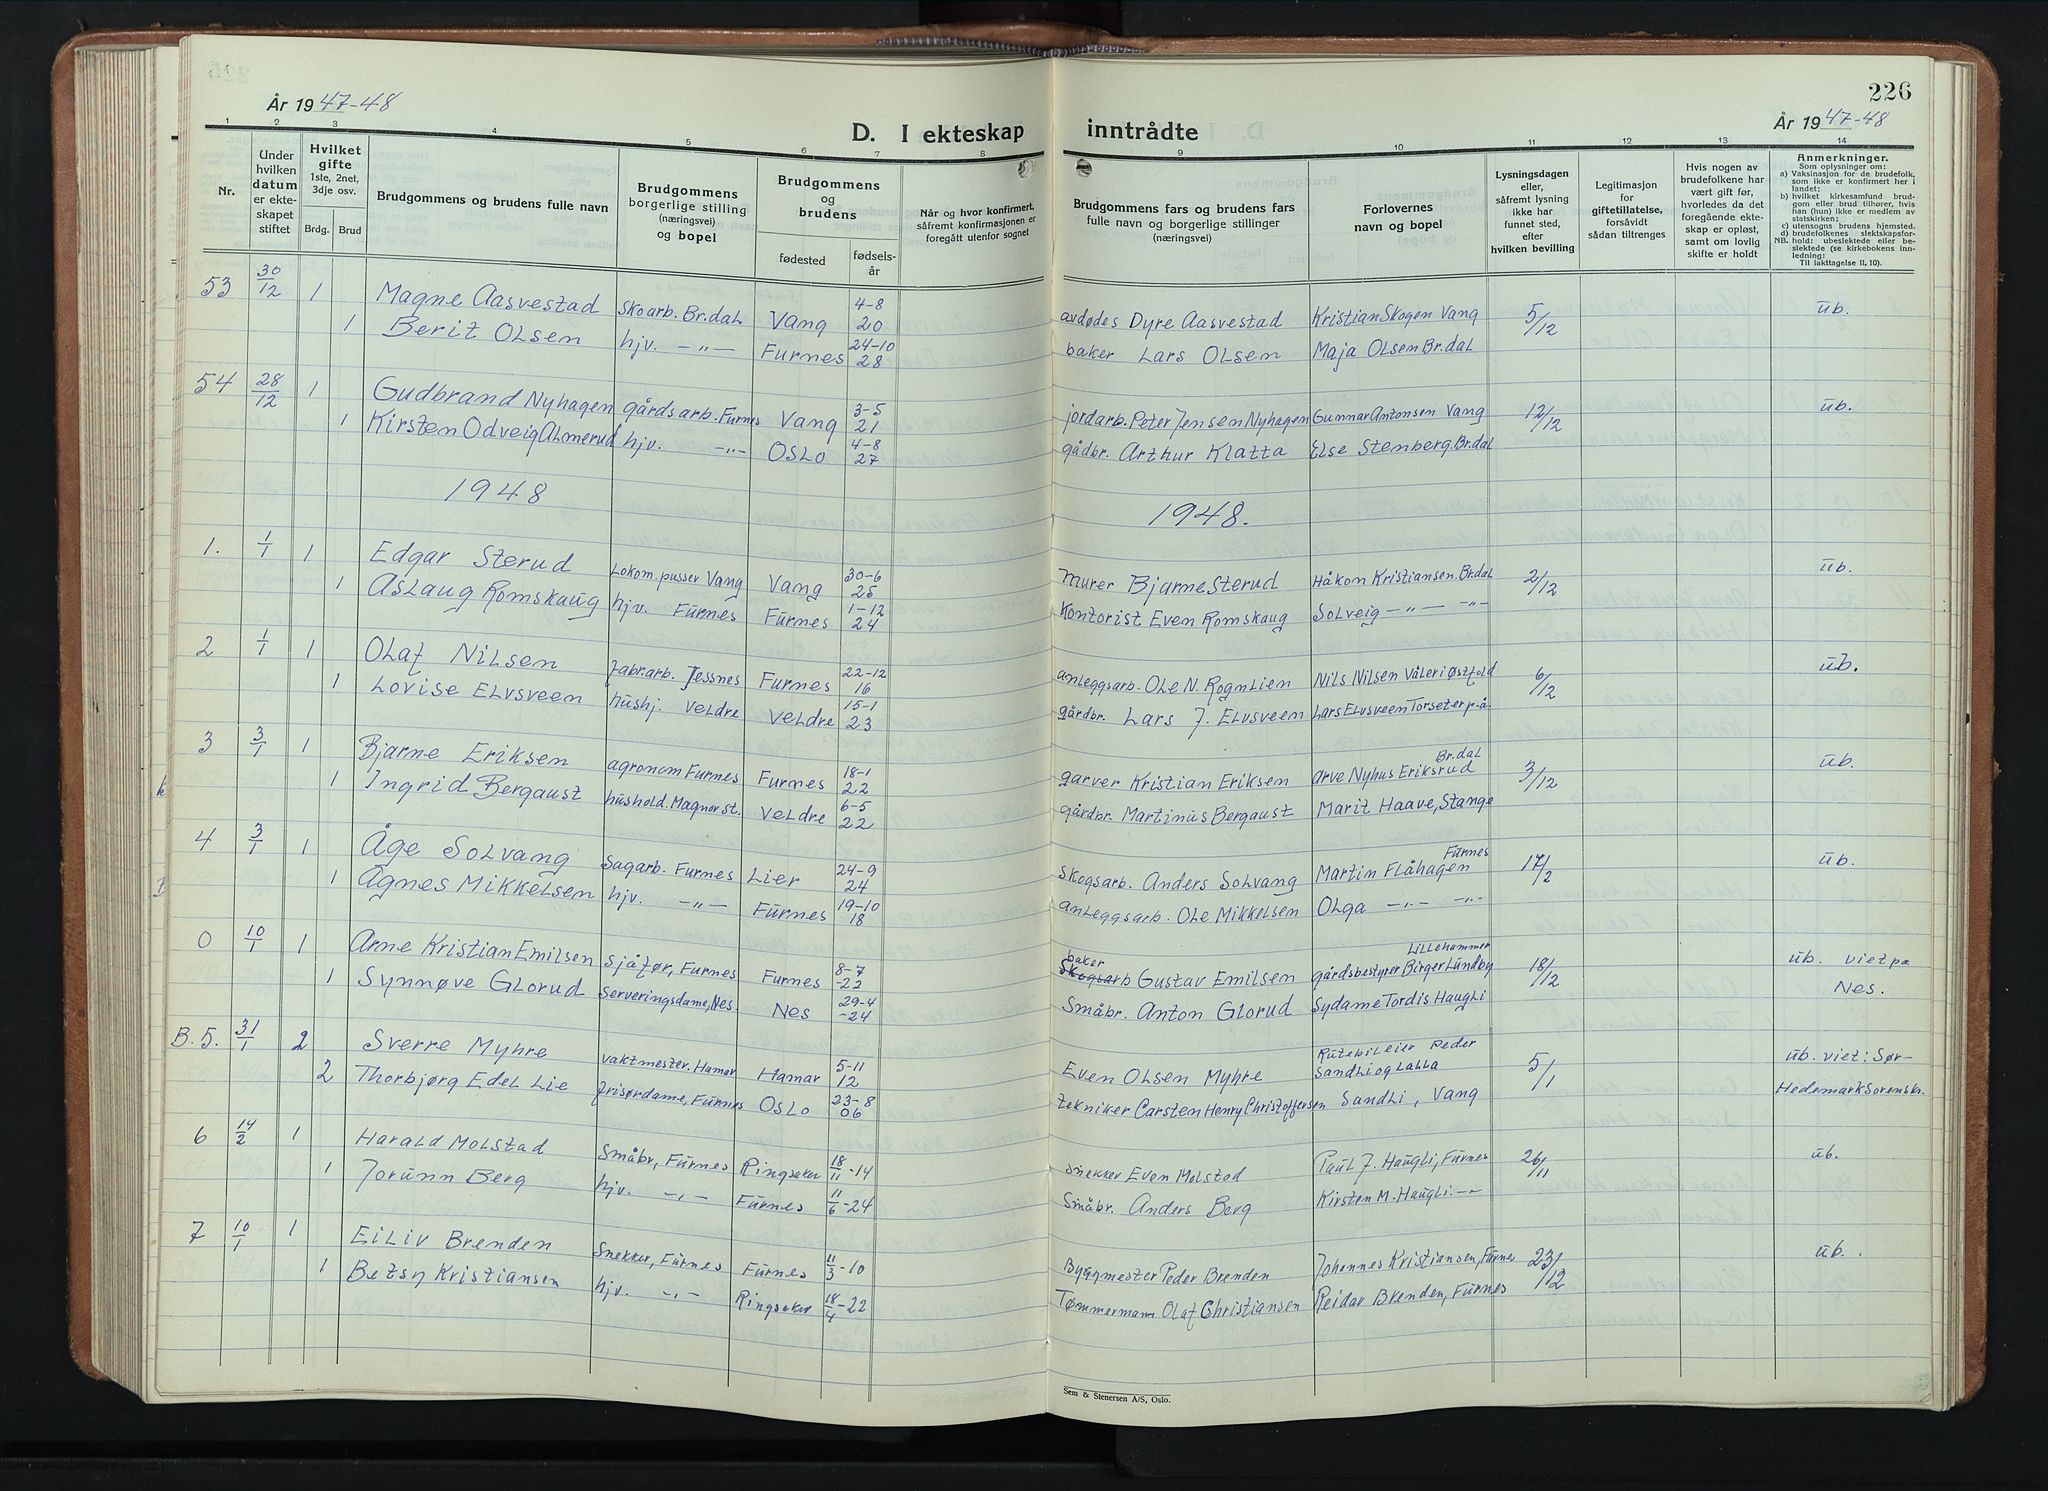 226
År 1947-48
D. I ekteskap inntrådte
År 1947-48
1 2 3 4 5 6 7 8 9 10 11 12 13 14
Nr.
Under hvilken datum er ekteskapet stiftet
Hvilket gifte 1ste, 2net, 3dje osv.
Brdg. Brud
Brudgommens og brudens fulle navn
Brudgommens borgerlige stilling (næringsvei) og bopel
Brudgommens og brudens
fødested
fødselsår
Når og hvor konfirmert, såfremt konfirmasjonen er foregått utenfor sognet
Brudgommens fars og brudens fars fulle navn og borgerlige stillinger (næringsvei)
Forlovernes navn og bopel
Lysningsdagen eller, såfremt lysning ikke har funnet sted, efter hvilken bevilling
Legitimasjon for giftetillatelse, forsåvidt sådan tiltrenges
Hvis nogen av brudefolkene har vært gift før, hvorledes da det foregående ekteskap er opløst, samt om lovlig skifte er holdt
Anmerkninger.
Som oplysninger om:
a) Vaksinasjon for de brudefolk, som ikke er konfirmert her i landet;
b) hvilket kirkesamfund brudgom eller brud tilhører, hvis han (hun) ikke er medlem av statskirken;
c) utensogns brudens hjemsted.
d) brudefolkenes slektskapsforhold: ubeslektede eller beslektede (se kirkebokens innledning:
NB.
Til iakttagelse II, 10).
53 30/12 1 Magne Aasvestad Skoarb. Br.dal Vang 4-8 20 avdødes Dyre Aasvestad Kristian Skogen Vang 5/12 üb.
1 Berit Olsen hjv. -"- Furnes 24-10 28 baker Lars Olsen Maja Olsen Br.dal
54 28/12 1 Gudbrand Nyhagen gårdsarb. Furnes Vang 3-5 21 jordarb. Peter Jensen Nyhagen Gunnar Antonsen Vang 12/12 üb.
1 Kirsten Odveig Almerud hjv. -"- Oslo 4-8 27 gådbr. Arthur Klatta Else Stenberg. Br.dal
1948 1948.
1. 1/1 1 Edgar Sterud Lokom.pusser Vang Vang 30-6 25 murer Bjarne Sterud Håkon Kristiansen. Br.dal 2/12 üb.
1 Aslaug Romskaug hjv. Furnes Furnes 1-12 24 Kontorist Even Romskaug Solveig -"- -"-
2 1/1 1 Olaf Nilsen fabr.arb. Jessnes Furnes 22-12 16 anleggsarb. Ole N. Rognlien Nils Nilsen Våler i Østfold 6/12 üb.
1 Lovise Elvsveen hushj. Veldre Veldre 15-1 23 gårdbr. Lars J. Elvsveen Lars Elvsveen Torseter p.å.
3 3/1 1 Bjarne Eriksen agronom Furnes Furnes 18-1 22 garver Kristian Eriksen Arve Nyhus Eriksrud Br.dal 3/12 üb.
1 Ingrid Bergaust hushold. Magnor st. Veldre 6-5 22 gårdbr. Martinus Bergaust Marit Haave, Stange
4 3/1 1 Åge Solvang Sagarb. Furnes Lier 24-9 24 Skogsarb. Anders Solvang Martin Flåhagen Furnes 17/2 üb.
1 Agnes Mikkelsen hjv. -"- Furnes 19-10 18 anleggsarb. Ole Mikkelsen Olga -"- -"-
0 10/1 1 Arne Kristian Emilsen Sjåfør, Furnes Furnes 8-7 -22 Skogsarb baker Gustav Emilsen gårdsbestyrer Birger Lundby Lillehammer 18/12 üb. viet pa
1 Synnøve Glorud Serveringsdame, Nes. Nes 29-4 -24 Småbr. Anton Glorud Sydame Tordis Haugli Nes.
B. 5. 31/1 2 Sverre Myhre vaktmester. Hamar Hamar 5-11 12 Even Olsen Myhre Rutebileier Peder Sandli og Lalla 5/1 üb. viet: Sør-
2 Thorbjørg Edel Lie frisørdame, Furnes Oslo 23-8 06 tekniker Carsten Henry Christoffersen Sandli, Vang Hedemark Sorensk.
6 14/2 1 Harald Molstad Småbr, Furnes Ringsaker 18/11-14 Snekker Even Molstad Paul J. Haugli, Furnes 26/11 üb.
1 Jorunn Berg hjv. -"- Furnes 11/6-24 Småbr. Anders Berg Kirsten M. Haugli. -"-
7 10/1 1 Eiliv Brenden Snekker, Furnes Furnes 11/3-10 Byggmester Peder Brenden Johannes Kristiansen, Furnes 23/12 üb.
1 Betsy Kristiansen hjv. -"- Ringsaker 18/4-22 Tømmermann Olaf Christiansen Reidar Brenden, Furnes
Sem & Stenersen A/S, Oslo.